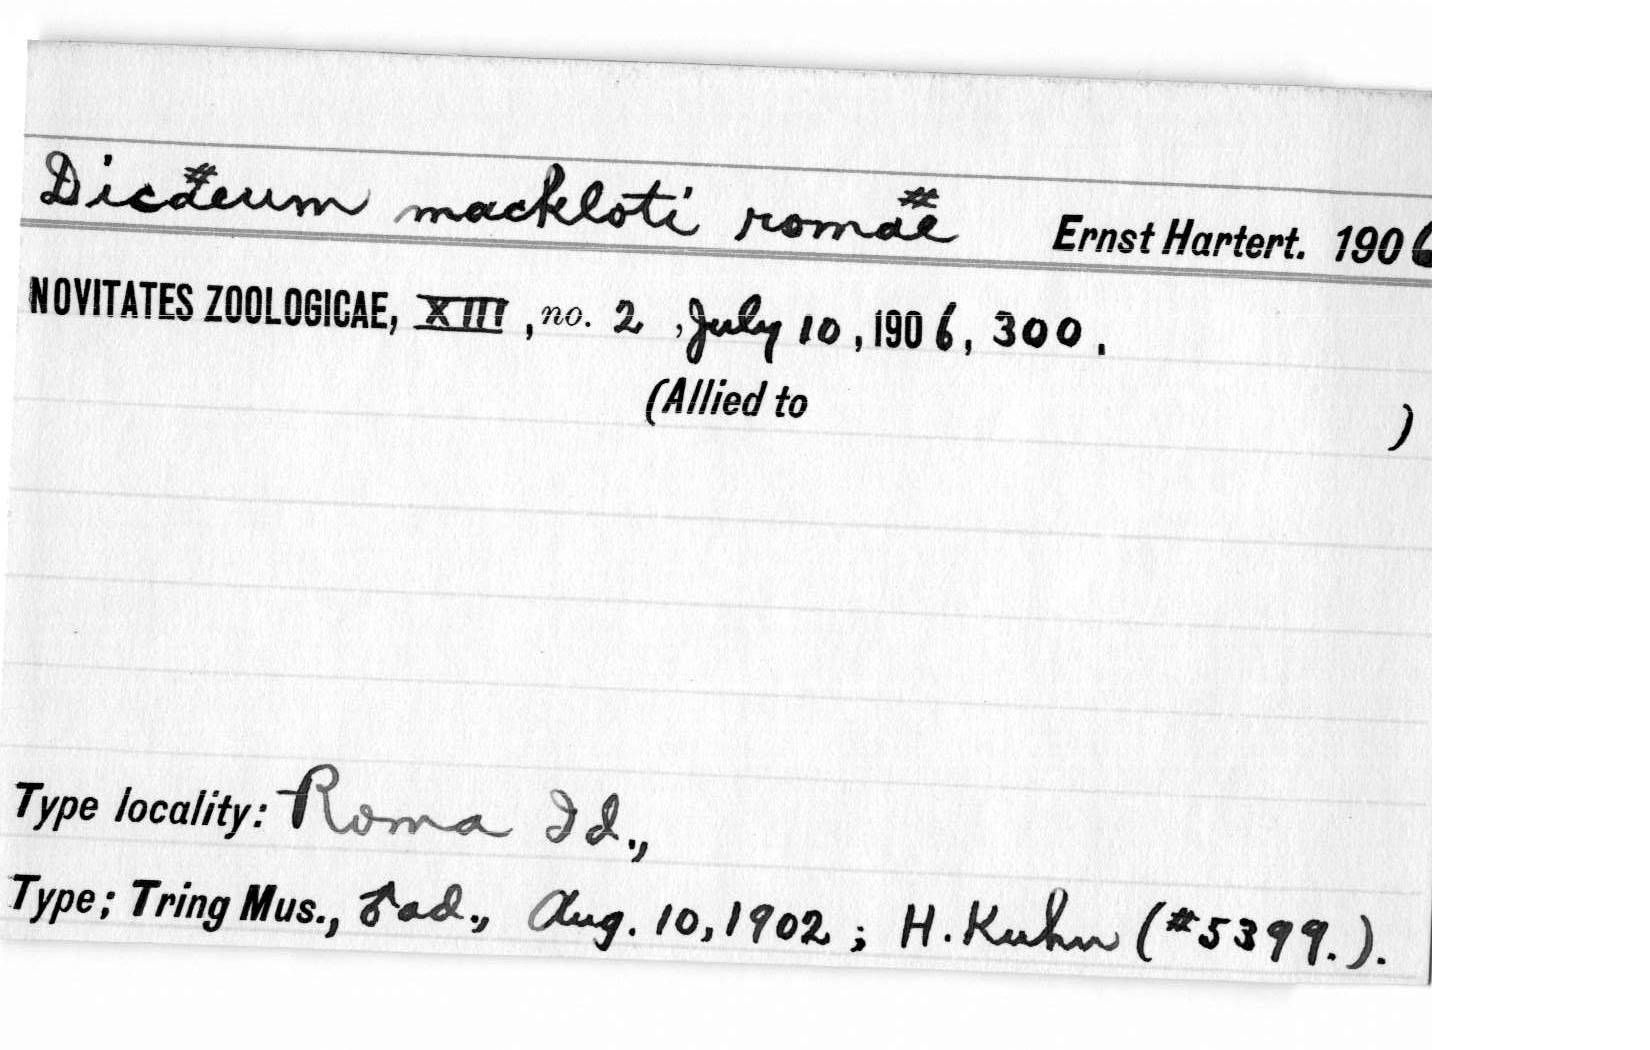 Dicaeum mackloti romae Ernst Hartert. 1906
NOVITATES ZOOLOGICAE, XIII, no. 2, July 10, 1906, 300.
(Allied to )
Type locality: Roma Id.,
Type; Tring Mus., ♂ ad., Aug. 10, 1902; H. Kuhn (#5399.).